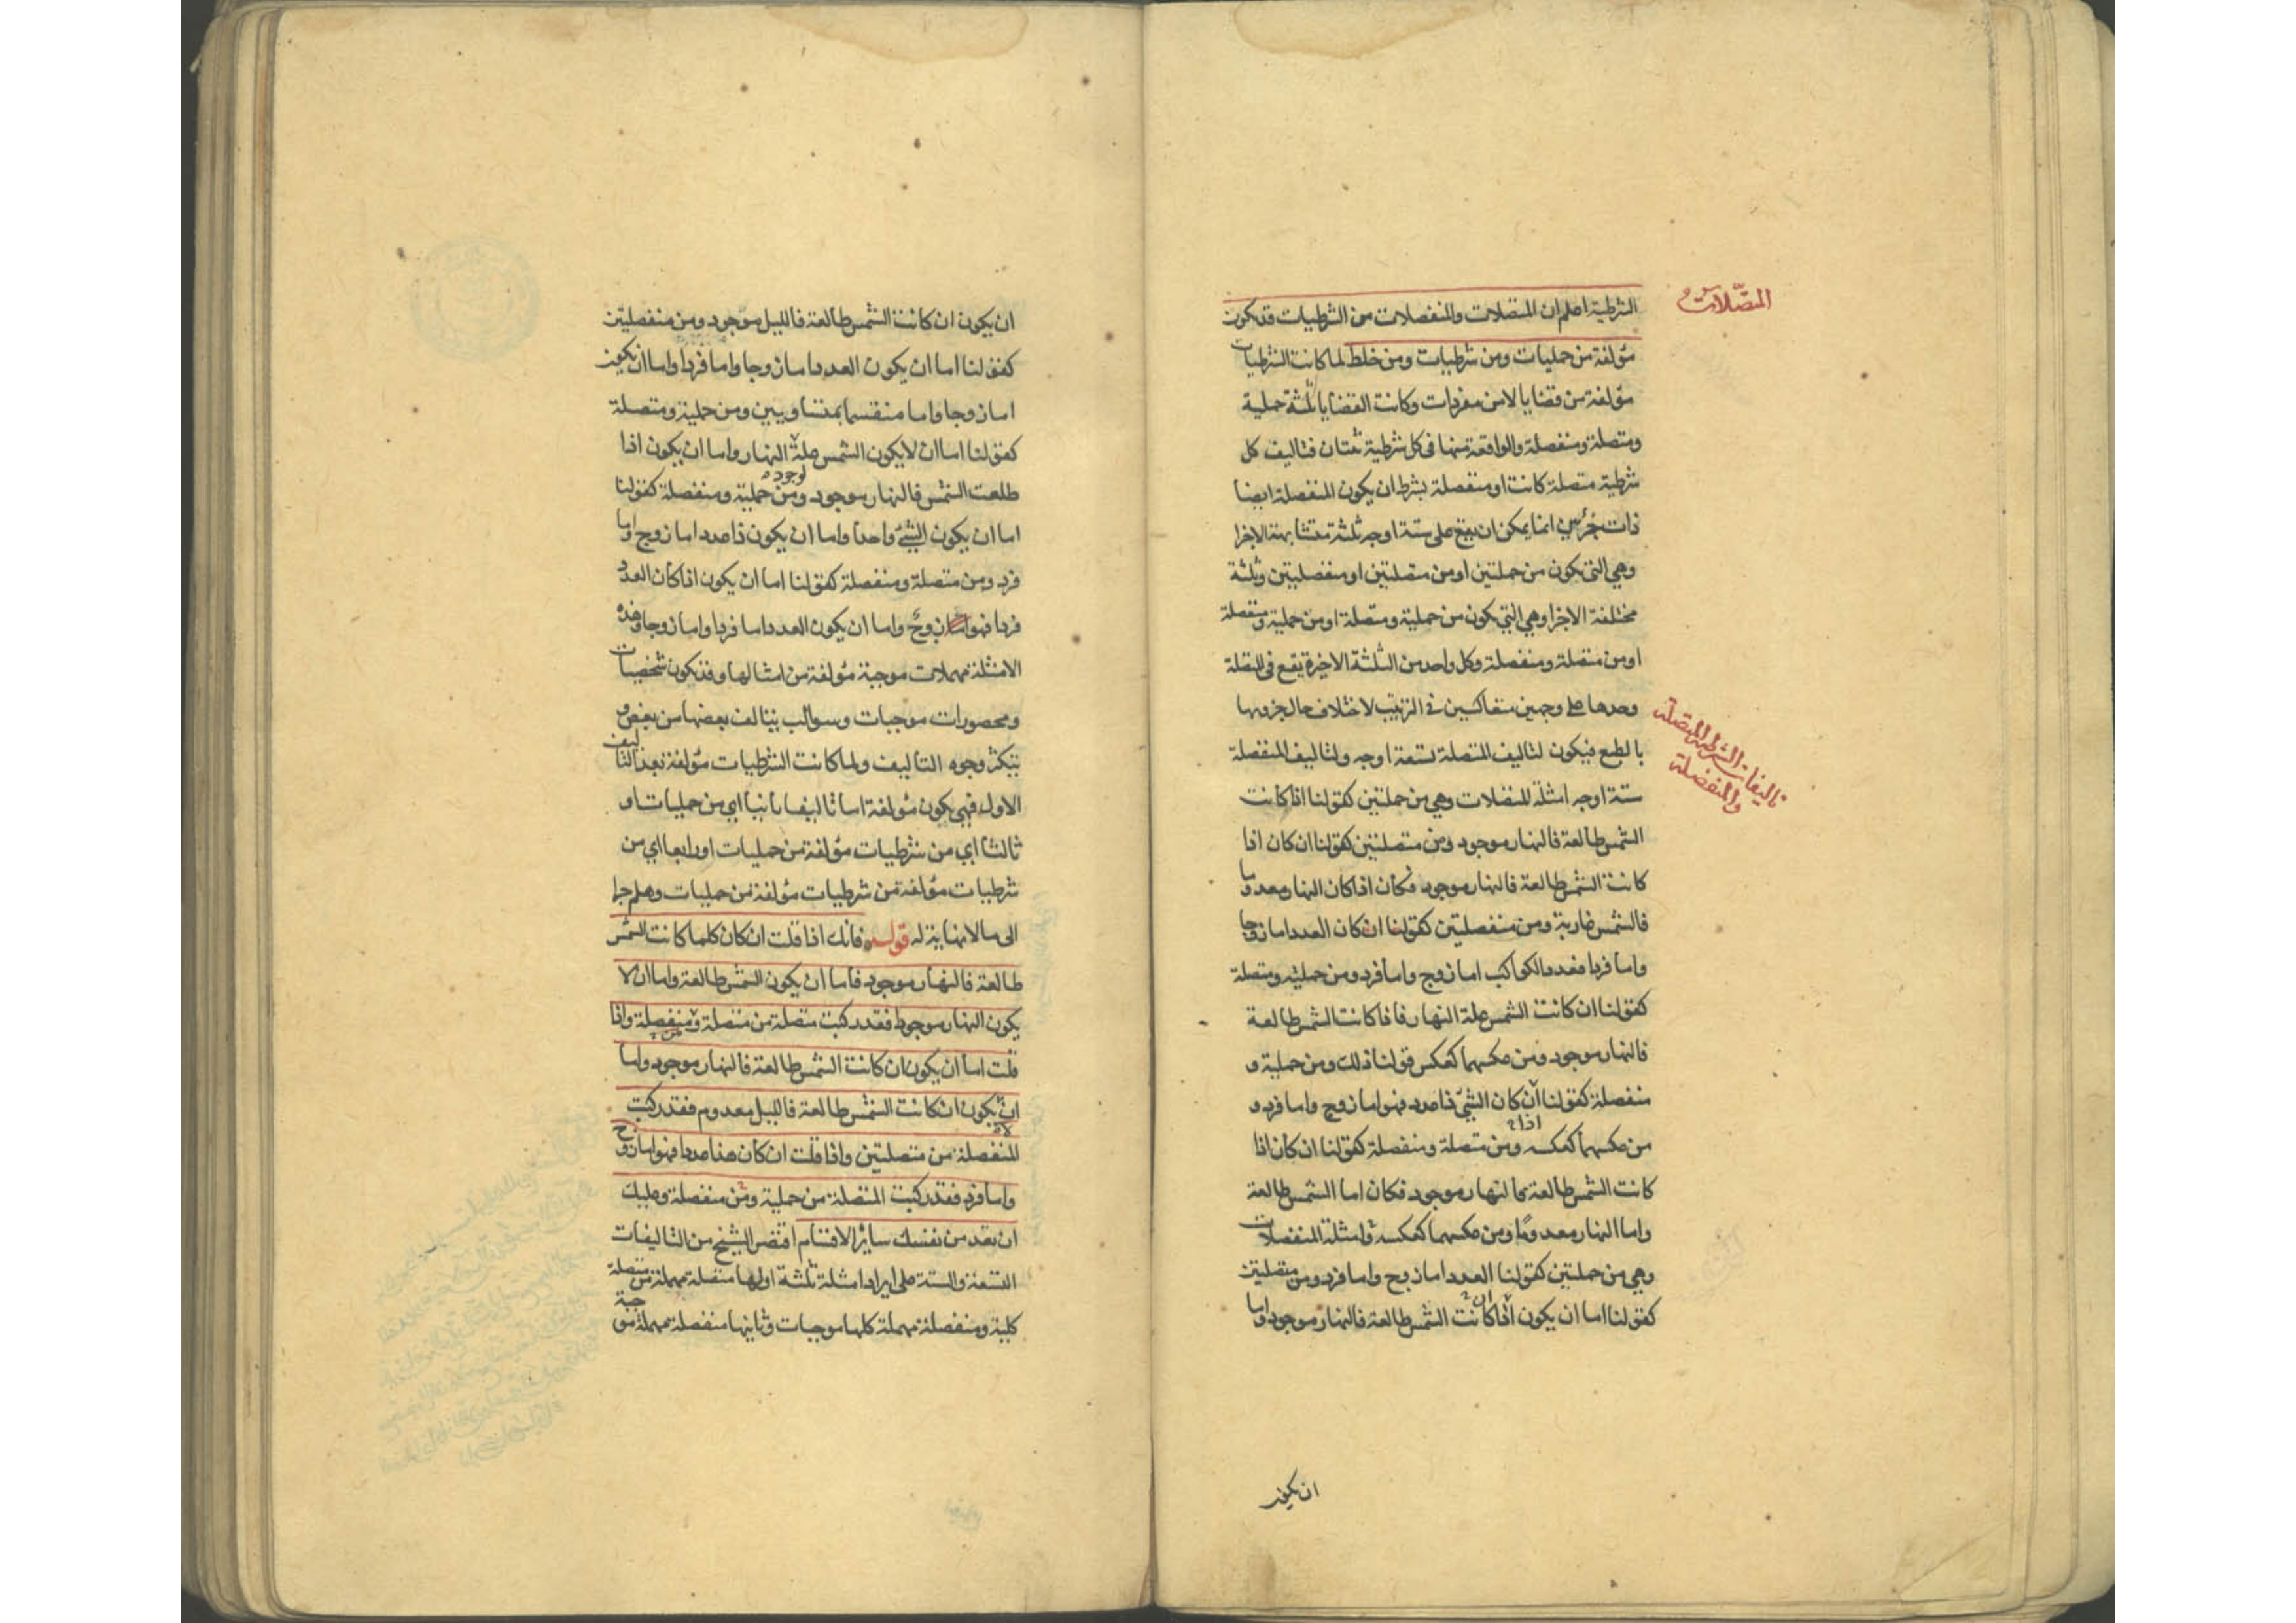 المتصلات
الشرطية اعلم ان المتصلات والمنفصلات من الشرطيات قد يكون
مؤلفة من حمليات ومن شرطيات ومن خلط لما كانت الشرطيات
مؤلفة من قضايا لا من مفردات وكانت القضايا ثلثة حملية
ومتصلة ومنفصلة والواقعة منها فى كل شرطية ثنتان فتاليف كل
شرطية متصلة كانت او منفصلة بشرط ان يكون المنفصلة ايضا
ذات جزئين انما يمكن ان يقع على ستة اوجه ثلثة متشابهة الاجزا
وهي التى تكون من حمليتين او من متصلتين او منفصليتين وثلثة
مختلفة الاجزا وهي التي يكون من حملية ومتصلة او من حملية ومنفصلة
او من متصلة ومنفصلة وكل واحد من الثلثة الاخيرة يقع فى المتصلة
وحدها على وجهين متعاكسين فى الترتيب لاختلاف حال جزويها
تاليفات الشرطية المتصلة
والمنفصلة
بالطبع فيكون لتاليف المتصلة تسعة اوجه ولتاليف المنفصلة
ستة اوجه امثلة المتصلات وهي من حمليتين كقولنا اذا كانت
الشمس طالعة فالنهار موجود ومن متصلتين كقولنا ان كان اذا
كانت الشمس طالعة فالنهار موجود فكان اذا كان النهار معدوما
فالشمس غاربة ومن منفصليتن كقولنا ان كان العدد اما زوجا
واما فردا فعدد الكواكب اما زوج واما فرد ومن حملية ومتصلة
كقولنا ان كانت الشمس علة النهار فاذا كانت الشمس طالعة
فالنهار موجود ومن عكسهما كعكس قولنا ذلك ومن حملية و
منفصلة كقولنا ان كان الشئ ذا عدد فهو اما زوج واما فرد و
من عكسهما كعكسه ومن متصلة ومنفصلة كقولنا ان كان اذا
كانت الشمس طالعة فالنهار موجود فكان اما الشمس طالعة
واما النهار معدوما ومن عكسهما كعكسه وامثلة المنفصلات
وهي من حمليتين كقولنا العدد اما زوج واما فرد ومن متصليتن
كقولنا اما ان يكون ان كانت الشمس طالعة فالنهار موجود واما
ان يكون
ان يكون ان كانت الشمس طالعة فالليل موجود ومن منفصليتن
كقولنا اما ان يكون العدد اما زوجا واما فردا واما ان يكون
اما زوجا واما منقسما بمتساويين ومن حملية ومتصلة
كقولنا اما ان لا يكون الشمس علة النهار واما ان يكون اذا
طلعت الشمس فالنهار موجود ومن حملية ومنفصلة كقولنا
اما ان يكون الشئ واحدا واما ان يكون ذا عدد اما زوج واما
فرد ومن متصلة ومنفصلة كقولنا اما ان يكون اذا كان العدد
فردا فهو زوج واما ان يكون العدد اما فردا واما زوجا وهذه
الامثلة مهملات موجبة مؤلفة من امثالها وقد يكون شخصيات
ومحصورات موجبات وسوالب يتالف بعضها من بعض و
يتكثر وجوه التاليف ولما كانت الشرطيات مؤلفة بعد التاليف
الاول فهي يكون مؤلفة اما تاليفا ثانيا اي من حمليات او
ثالثا اي من شرطيات مؤلفة من حمليات او رابعا اي من
شرطيات مؤلفة من شرطيات مؤلفة من حمليات وهلم جرا
الى ما لا نهاية له قوله فانك اذا قلت ان كان كلما كانت الشمس
طالعة فالنهار موجود فاما ان يكون الشمس طالعة واما ان لا
يكون النهار موجودا فقد ركبت متصلة من متصلة ومنفصلة واذا
قلت اما ان يكون ان كانت الشمس طالعة فالنهار موجود واما
ان يكون ان كانت الشمس طالعة فالليل معدوم فقد ركبت
المنفصلة من متصلتين واذا قلت ان كان هذا عددا فهو اما زوج
واما فرد فقد ركبت المتصلة من حملية ومن منفصلة وعليك
ان تعد من نفسك سائر الاقسام اقتصر الشيخ من التاليفات
التسعة والستة على ايراد امثلة ثلثة اولها متصلة مهملة من متصلة
كلية ومنفصلة مهملة كلها موجبات وثانيها منفصلة مهملة موجبة